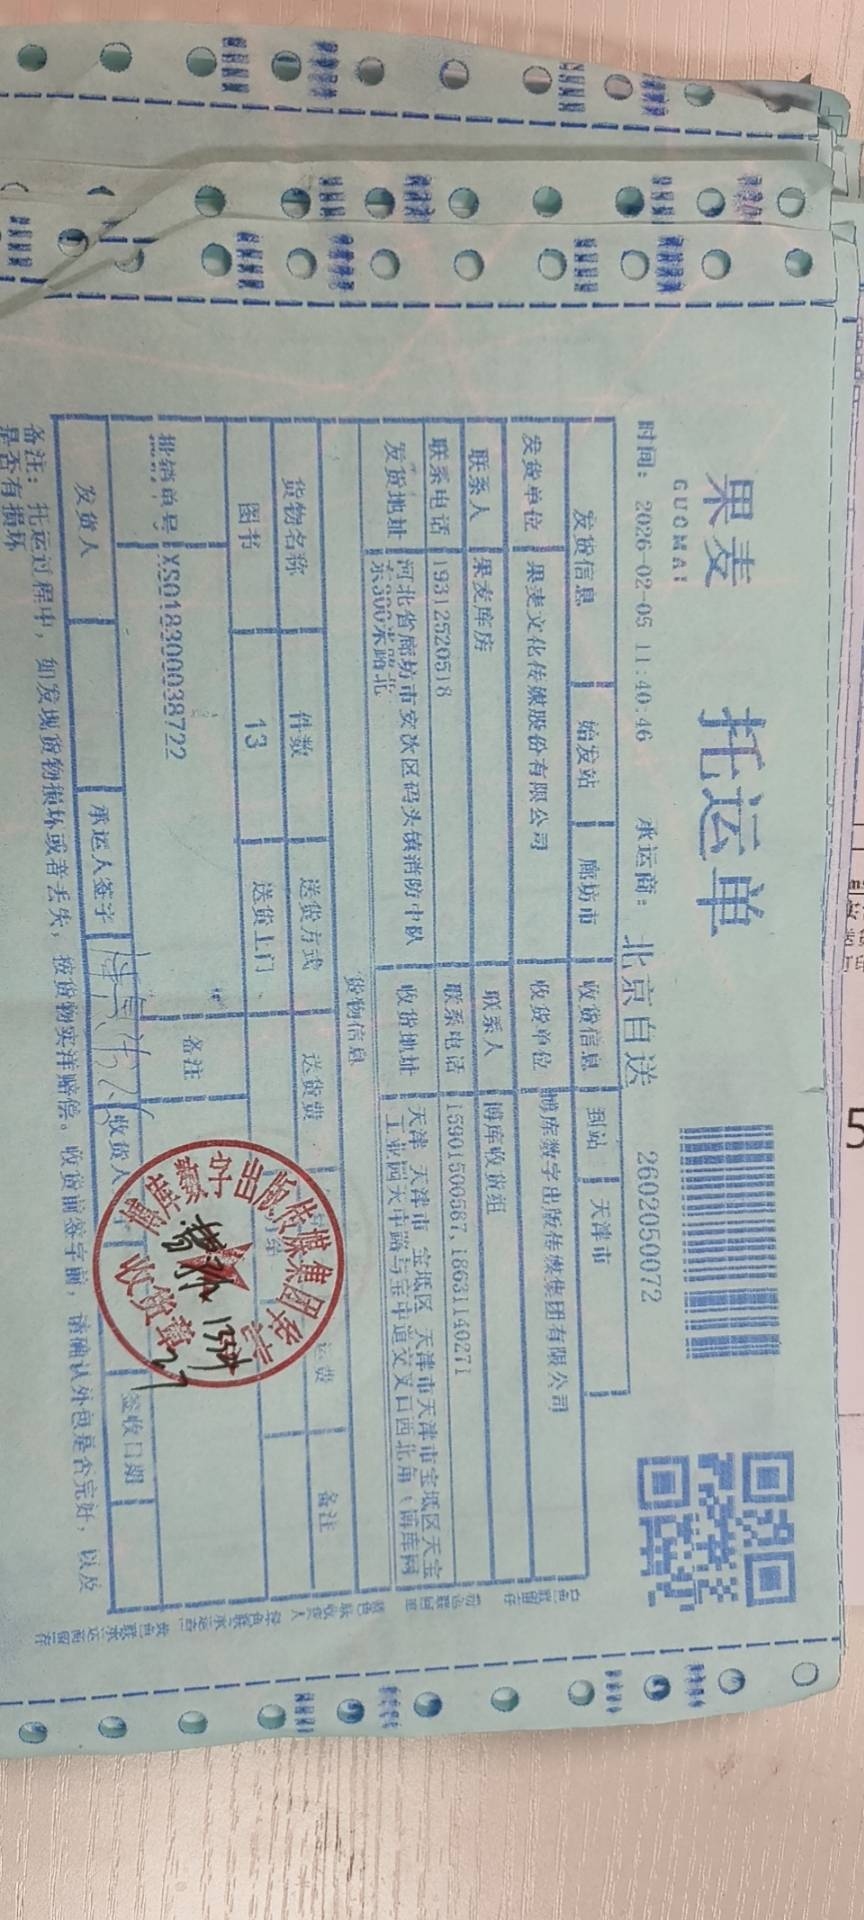 果麦
GUOMAI
托运单
时间： 2026-02-05 11:40:46 承运商： 北京自送 2602050072
发货信息 始发站 廊坊市 收货信息 到站 天津市
发货单位 果麦文化传媒股份有限公司 收货单位 博库数字出版传媒集团有限公司
联系人 果麦库房 联系人 博库收货组
联系电话 19312520518 联系电话 15901500587,18631140271
发货地址 河北省廊坊市安次区码头镇消防中队
东300米路北
收货地址 天津 天津市 宝坻区 天津市天津市宝坻区天宝
工业园天中路与宝中道交叉口西北角（博库网
货物信息
货物名称 件数 送货方式 送货费 运费 备注
图书 13 送货上门
批销单号 XS018300038722 备注
发货人 承运人签字 收货人 签收日期
备注： 托运过程中，如发现货物损坏或者丢失，按货物实洋赔偿。收货前签字前，请确认外包是否完好，以及
是否有损坏
博库数字出版传媒集团
收货章